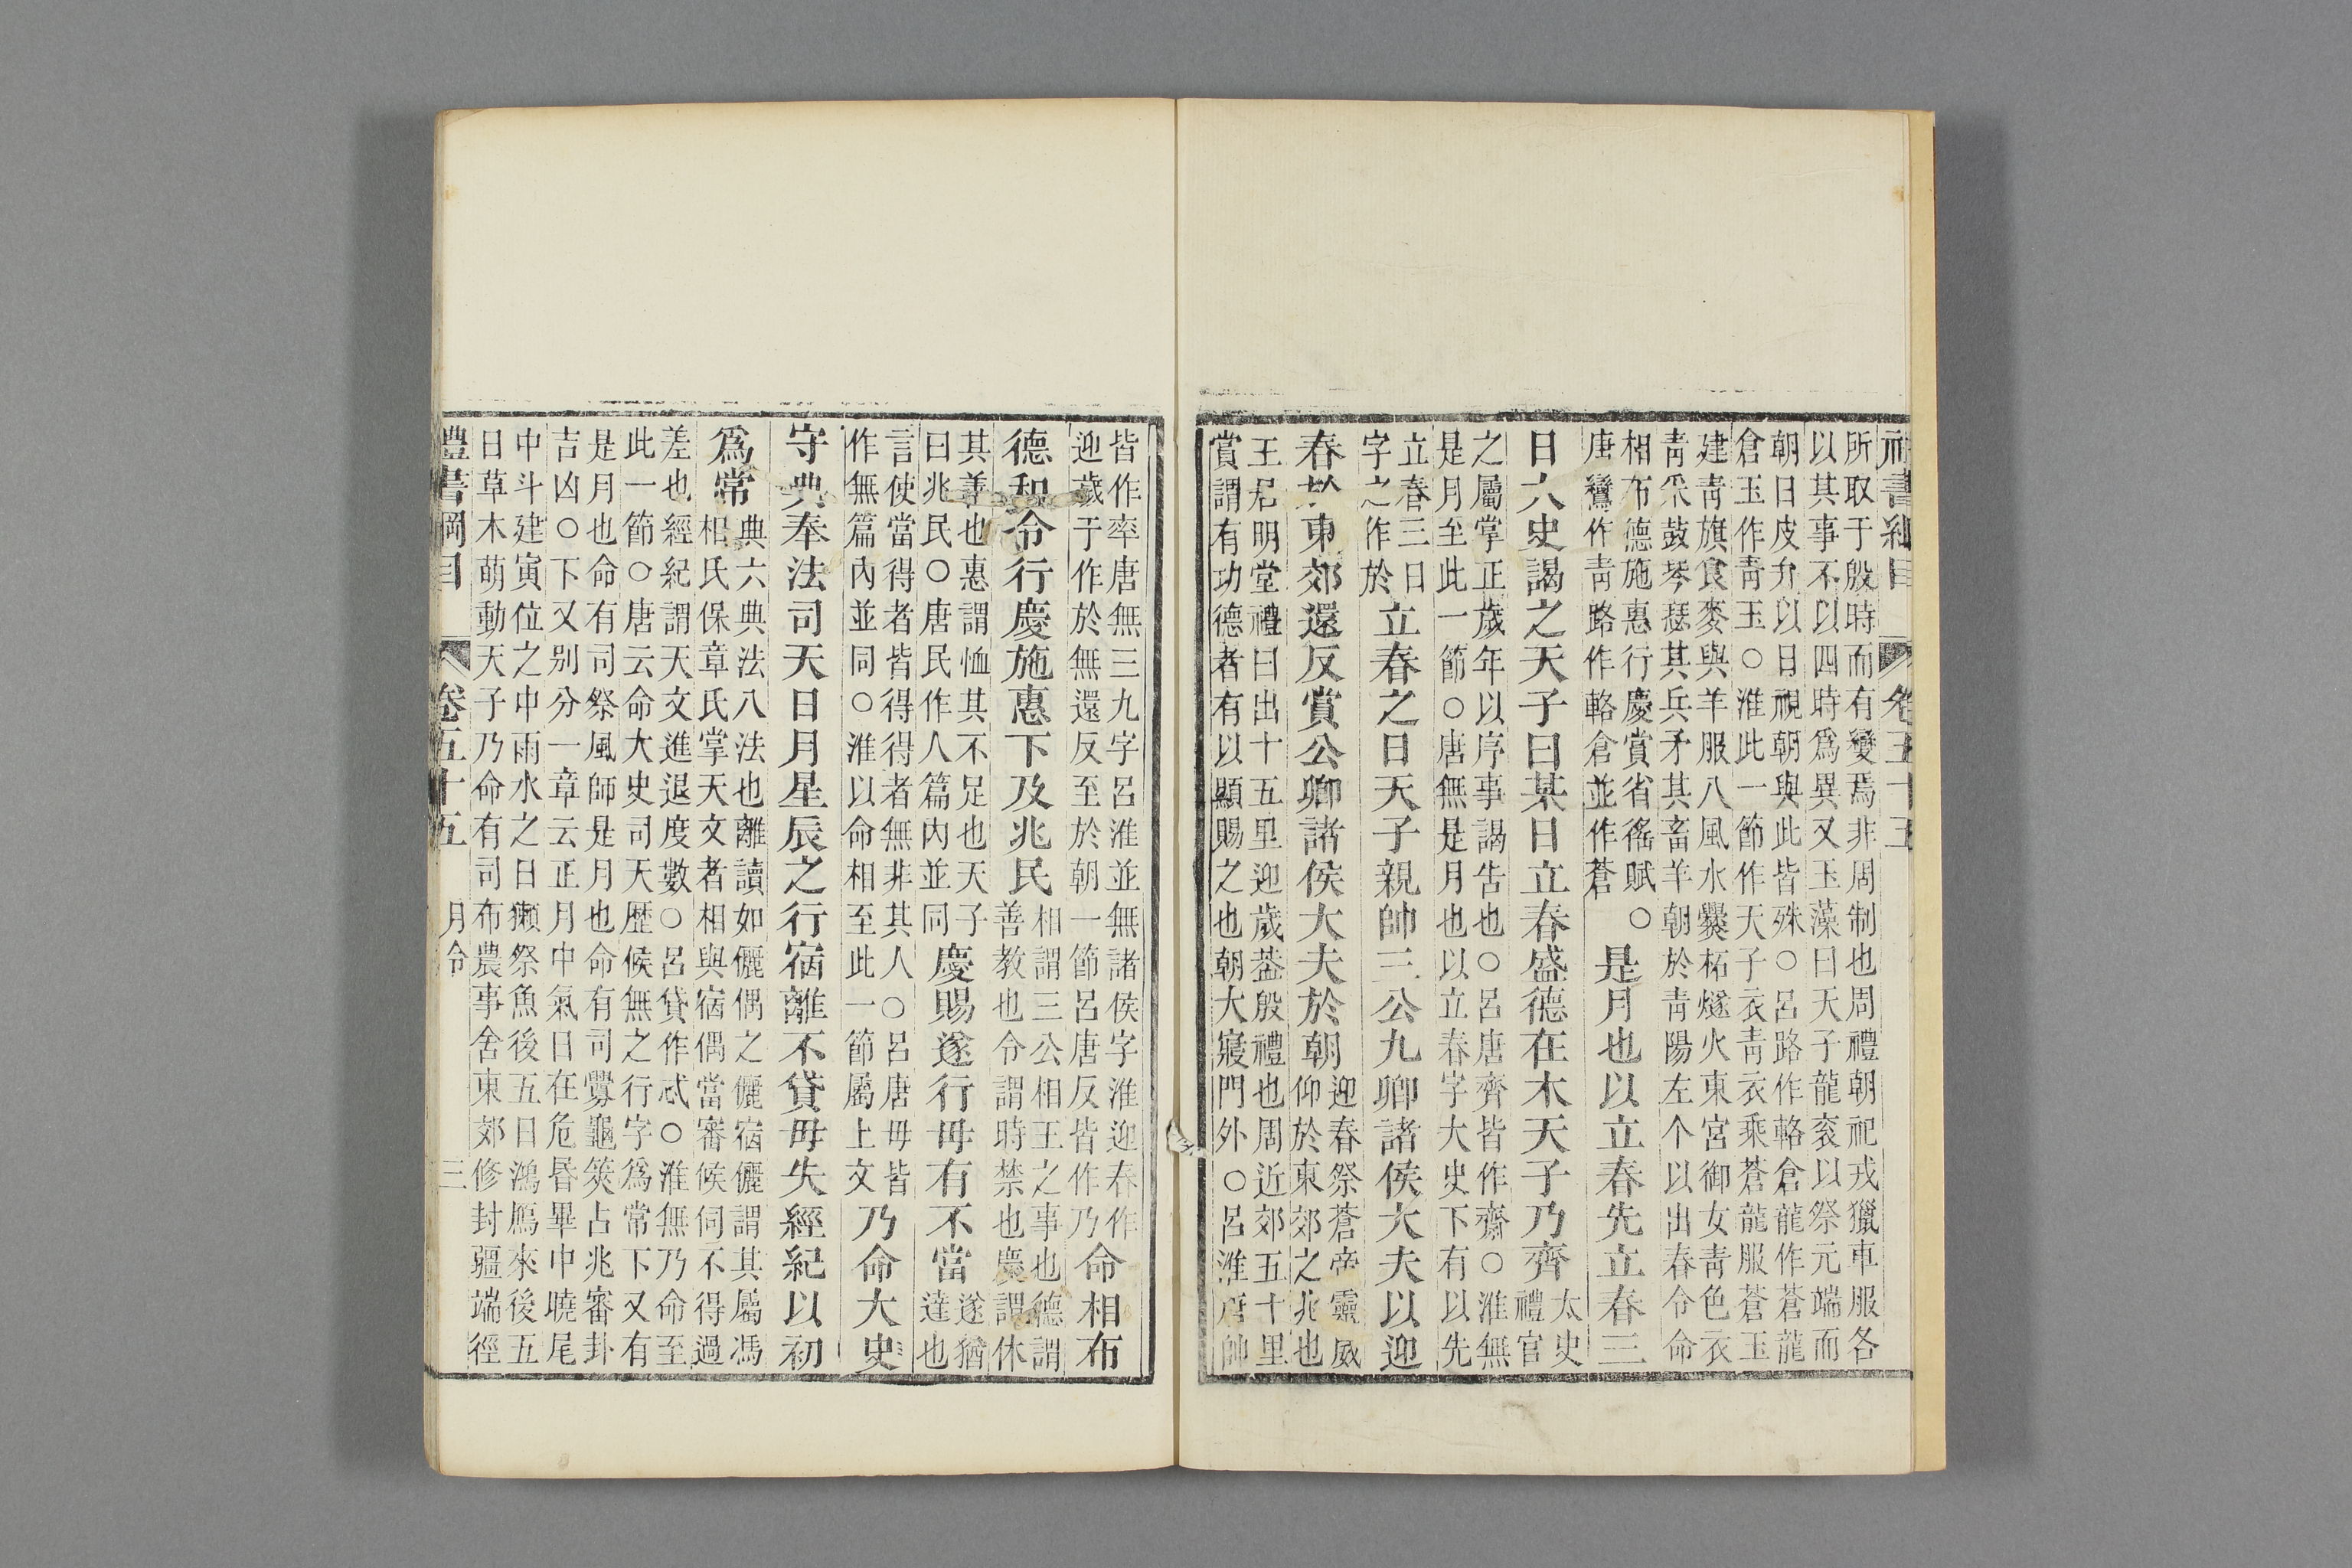 禮書綱目 卷五十五
所取于殷時而有變焉非周制也周禮朝祀戎獵車服各
以其事不以四時爲異又玉藻曰天子龍衮以祭元端而
朝日皮弁以日視朝與此皆殊○呂路作輅倉龍作蒼龍
倉玉作青玉○淮此一節作天子衣青衣乘蒼龍服蒼玉
建青旗食麥與羊服八風水爨柘燧火東宮御女青色衣
青采鼓琴瑟其兵矛其畜羊朝於青陽左个以出春令命
相布德施惠行慶賞省徭賦○
唐鸞作青路作輅倉並作蒼
是月也以立春先立春三
日大史謁之天子曰某日立春盛德在木天子乃齊
太史
禮官
之屬掌正歲年以序事謁告也○呂唐齊皆作齋○淮無
是月至此一節○唐無是月也以立春字大史下有以先
立春三日
字之作於
立春之日天子親帥三公九卿諸侯大夫以迎
春於東郊還反賞公卿諸侯大夫於朝
迎春祭蒼帝靈威
仰於東郊之兆也
王居明堂禮曰出十五里迎歲葢殷禮也周近郊五十里
賞謂有功德者有以顯賜之也朝大寢門外○呂淮唐帥
皆作率唐無三九字呂淮並無諸侯字淮迎春作
迎歲于作於無還反至於朝一節呂唐反皆作乃
命相布
德和令行慶施惠下及兆民
相謂三公相王之事也德謂
善教也令謂時禁也慶謂休
其善也惠謂恤其不足也天子
曰兆民○唐民作人篇內並同
慶賜遂行毋有不當
遂猶
達也
言使當得者皆得得者無非其人○呂唐毋皆
作無篇內並同○淮以命相至此一節屬上文
乃命大史
守典奉法司天日月星辰之行宿離不貸毋失經紀以初
爲常
典六典法八法也離讀如儷偶之儷宿儷謂其屬馮
相氏保章氏掌天文者相與宿偶當審候伺不得過
差也經紀謂天文進退度數○呂貸作忒○淮無乃命至
此一節○唐云命大史司天歷候無之行字爲常下又有
是月也命有司祭風師是月也命有司釁龜筴占兆審卦
吉凶○下又別分一章云正月中氣日在危昏畢中曉尾
中斗建寅位之中雨水之日獺祭魚後五日鴻鴈來後五
日草木萌動天子乃命有司布農事舍東郊修封疆端徑
禮書綱目 卷五十五 月令 三